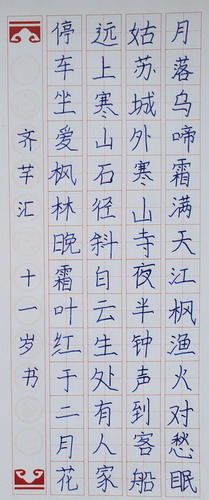 月落乌啼霜满天江枫渔火对愁眠
姑苏城外寒山寺夜半钟声到客船
远上寒山石径斜白云生处有人家
停车坐爱枫林晚霜叶红于二月花
齐芊汇 十一岁书